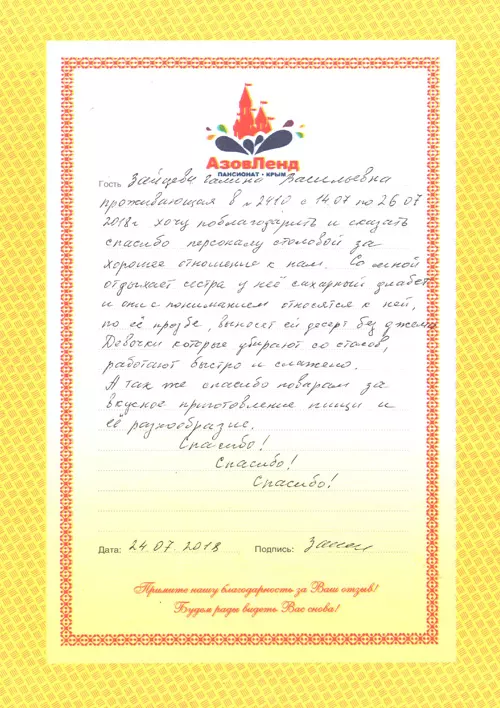 АзовЛенд
ПАНСИОНАТ • КРЫМ
Гость Зайцева Галина Васильевна
проживающая в №2410 с 14.07 по 26.07
2018г. хочу поблагодарить и сказать
спасибо персоналу столовой за
хорошее отношение к нам. Со мной
отдыхает сестра у неё сахарный диабет
и они с пониманием относятся к ней,
по её прозбе, выносят ей десерт без джема
Девочки которые убирают со столов,
работают быстро и слажено.
А так же спасибо поварам за
вкусное приготовление пищи и
её разнообразие.
Спасибо!
Спасибо!
Спасибо!
Дата: 24.07.2018 Подпись:
Примите нашу благодарность за Ваш отзыв!
Будем рады видеть Вас снова!